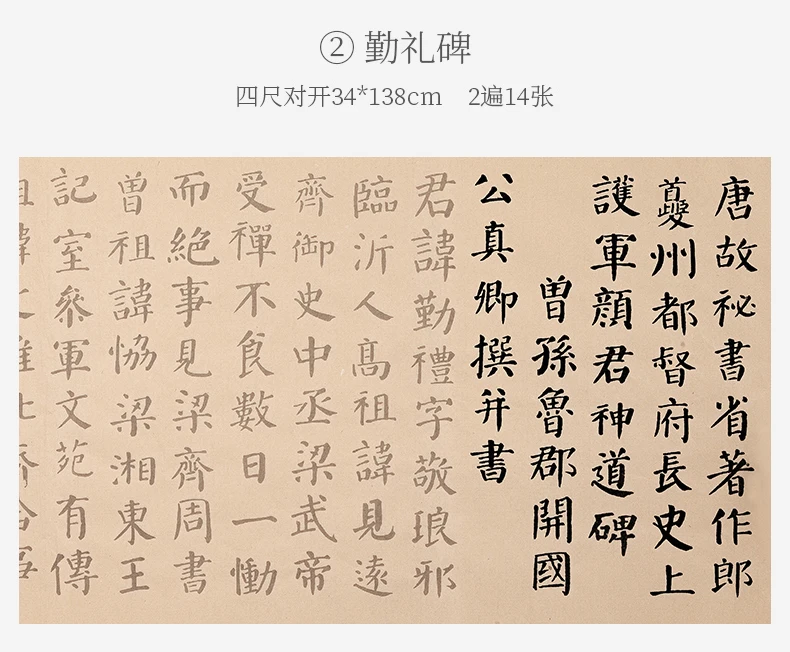 ② 勤礼碑
四尺对开34*138cm 2遍14张
唐故祕書省著作郎
夔州都督府長史上
護軍顏君神道碑
曾孫魯郡開國
公真卿撰并書
君諱勤禮字敬琅邪
臨沂人高祖諱見遠
齊御史中丞梁武帝
受禪不食數日一慟
而絕事見梁齊周書
曾祖諱協梁湘東王
記室參軍文苑有傳